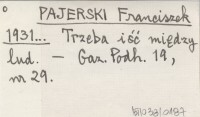 PAJERSKI Franciszek
1931... Trzeba iść między
lud. — Gaz. Podh. 19,
nr 29.